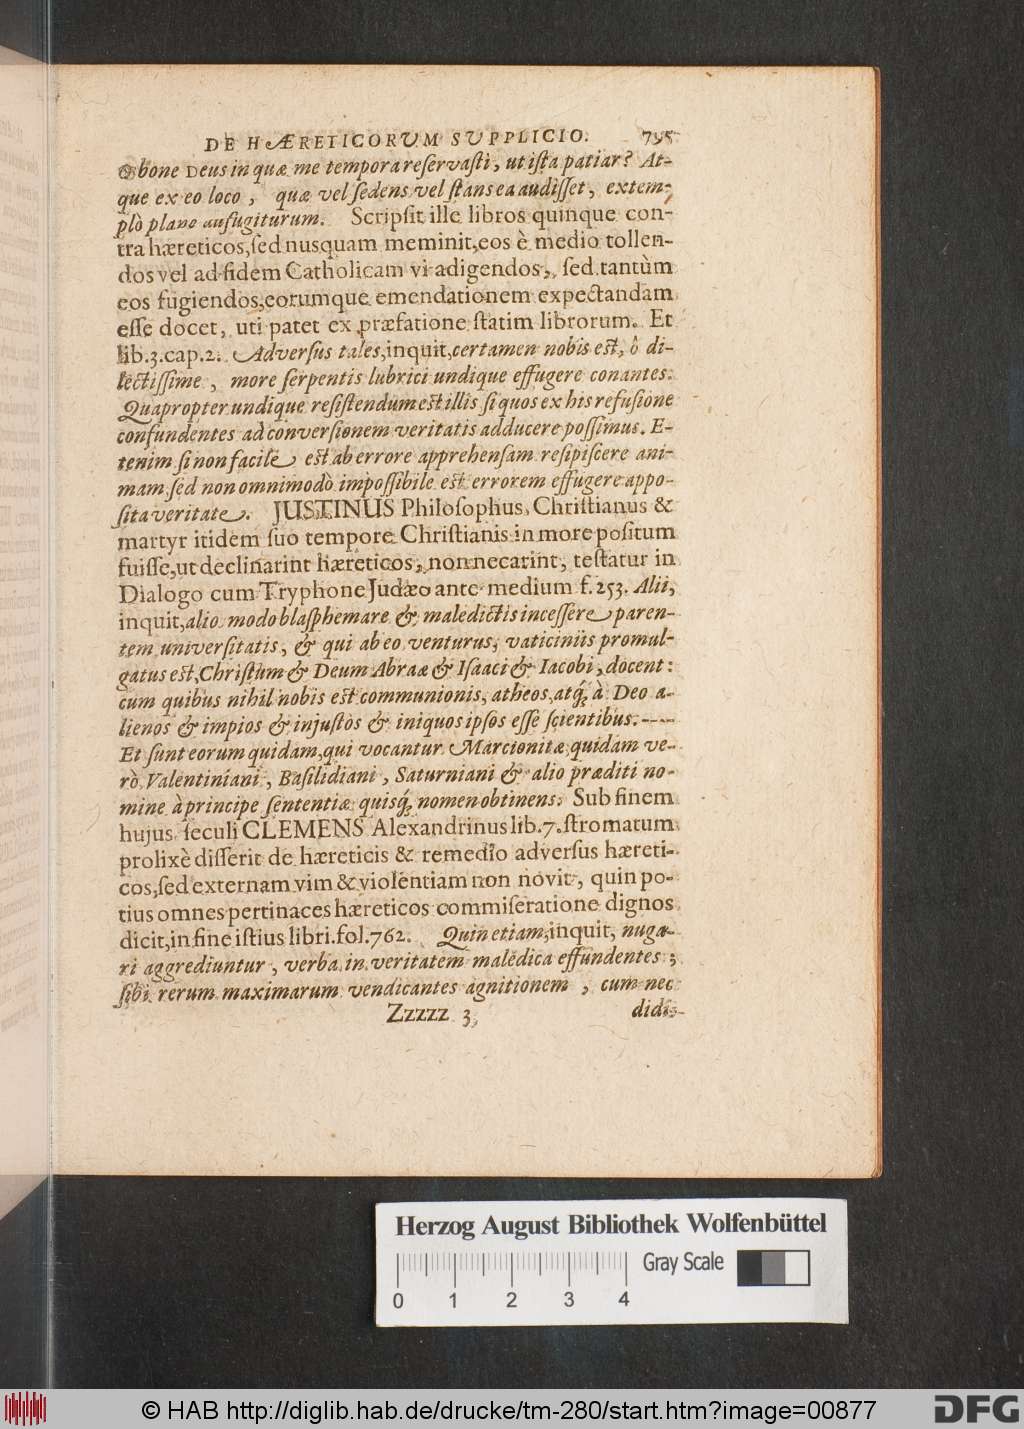 DE HÆRETICORUM SUPPLICIO. 795
O bone Deus in quæ me tempora reservasti, ut ista patiar? At-
que ex eo loco, quæ vel sedens vel stans ea audisset, extem-
plò plane aufugiturum. Scripsit ille libros quinque con-
tra hæreticos, sed nusquam meminit, eos è medio tollen-
dos vel ad fidem Catholicam vi adigendos, sed tantùm
eos fugiendos, eorumque emendationem expectandam
esse docet, uti patet ex præfatione statim librorum. Et
lib. 3. cap. 2. Adversus tales, inquit, certamen nobis est, ô di-
lectissime, more serpentis lubrici undique effugere conantes.
Quapropter undique resistendum est illis si quos ex his refusione
confundentes ad conversionem veritatis adducere possimus. E-
tenim si non facile est ab errore apprehensam resipiscere ani-
mam, sed non omnimodò impossibile est errorem effugere appo-
sita veritate. JUSTINUS Philosophus, Christianus &
martyr itidem suo tempore Christianis in more positum
fuisse, ut declinarint hæreticos, non necarint, testatur in
Dialogo cum Tryphone Judæo ante medium f. 253. Alii,
inquit, alio modo blasphemare & maledictis incessere paren-
tem universitatis, & qui ab eo venturus, vaticiniis promul-
gatus est, Christum & Deum Abraæ & Isaaci & Iacobi, docent:
cum quibus nihil nobis est communionis, atheos, atq́; à Deo a-
lienos & impios & injustos & iniquos ipsos esse scientibus. ----
Et sunt eorum quidam, qui vocantur Marcionitæ quidam ve-
rò Valentiniani, Basilidiani, Saturniani & alio præditi no-
mine à principe sententiæ quisq́; nomen obtinens. Sub finem
hujus seculi CLEMENS Alexandrinus lib. 7. stromatum
prolixè disserit de hæreticis & remedio adversus hæreti-
cos, sed externam vim & violentiam non novit, quin po-
tius omnes pertinaces hæreticos commiseratione dignos
dicit, in fine istius libri. fol. 762. Quin etiam, inquit, nuga-
ri aggrediuntur, verba in veritatem maledica effundentes;
sibi rerum maximarum vendicantes agnitionem, cum nec
Zzzzz 3 didi-
Herzog August Bibliothek Wolfenbüttel
Gray Scale
0 1 2 3 4
© HAB http://diglib.hab.de/drucke/tm-280/start.htm?image=00877
DFG